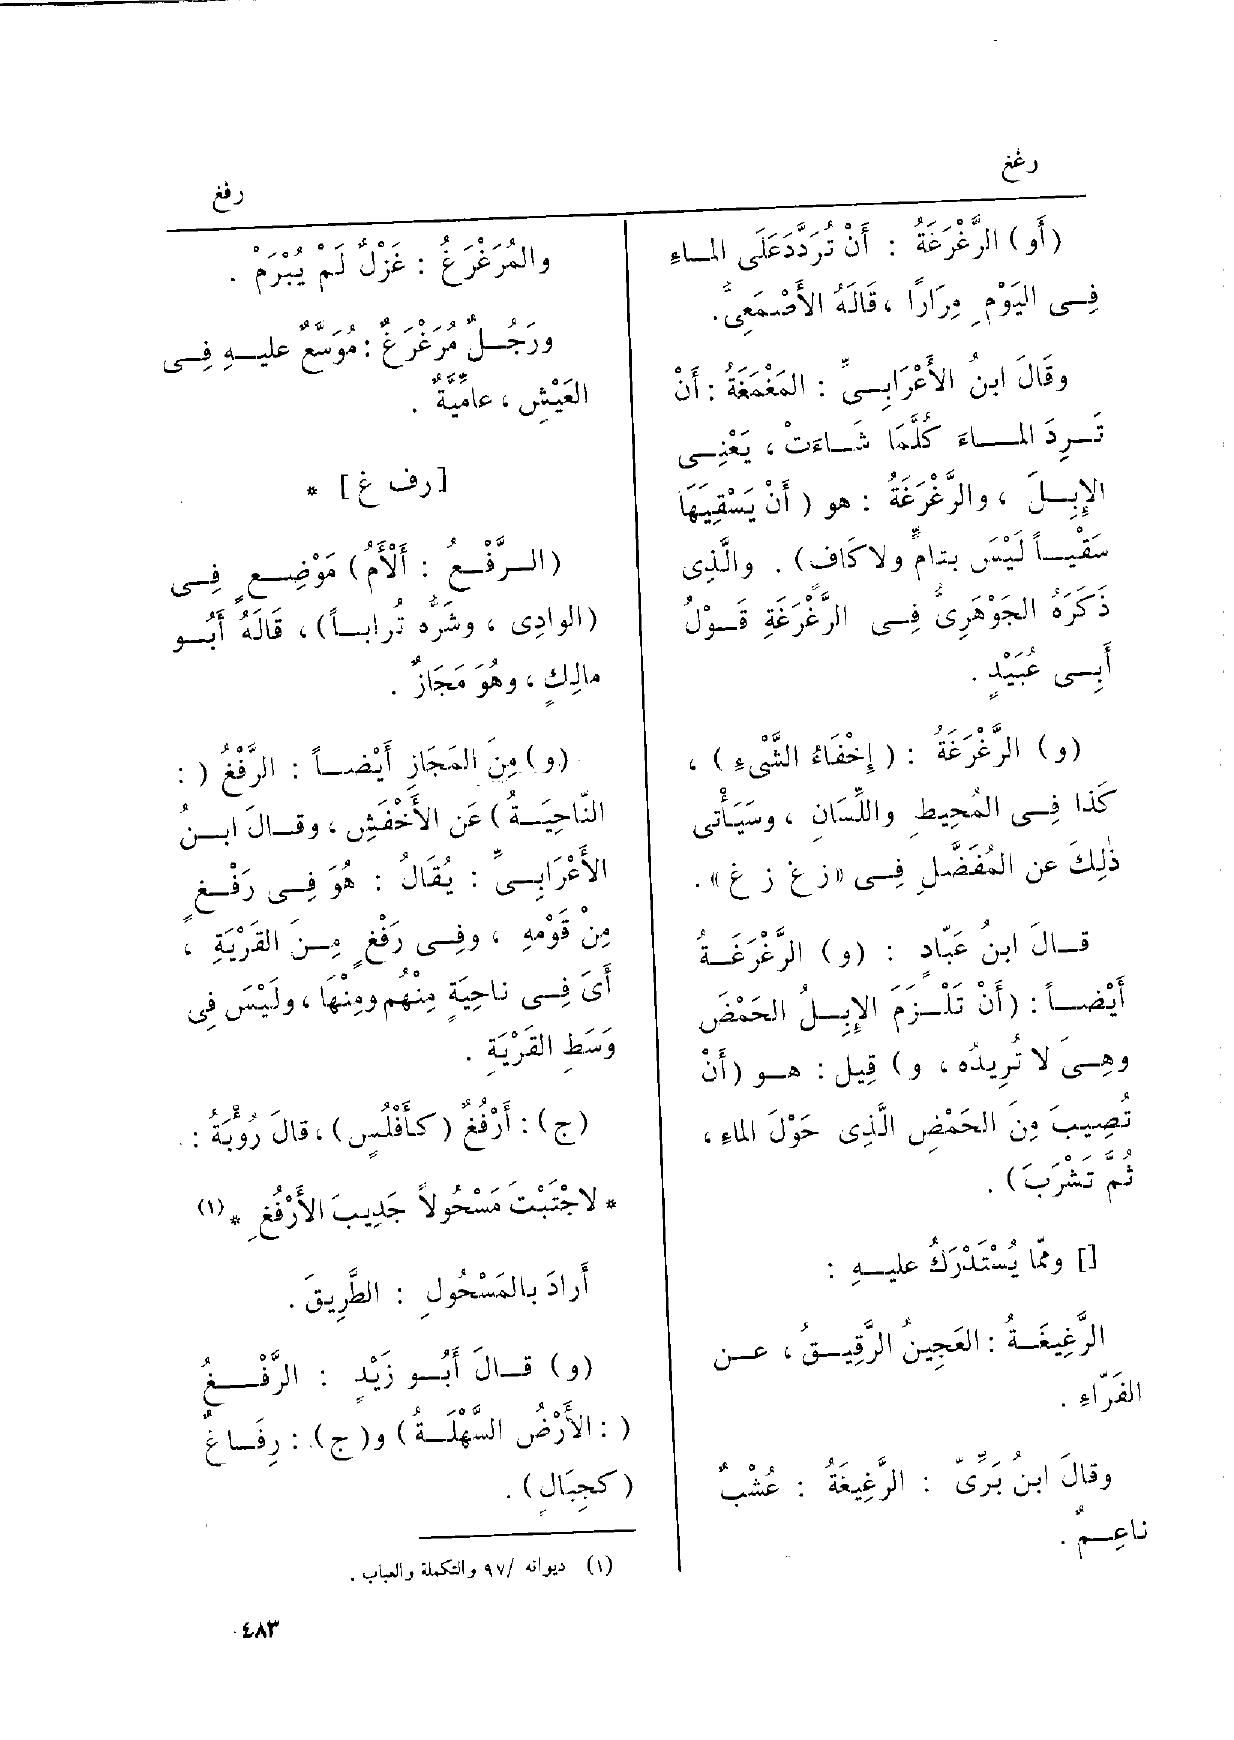 رغغ
رفغ
(أو) الرَّغْرَغَةُ : أَنْ تُرَدَّدَ عَلَى المــاءِ
فِـى اليَوْمِ مِرَارًا ، قَالَهُ الأَصْمَعِىُّ.
وقَالَ ابنُ الأَعْرَابِــىِّ : المَغْمَغَةُ : أَنْ
تَــرِدَ المـــاءَ كُلَّمَا شَــاءَتْ ، يَعْنِــى
الإِبِــلَ ، والرَّغْرَغَةُ : هو (أَنْ يَسْقِيَهَا
سَقْيــاً لَيْسَ بتامٍّ ولا كَافٍ) . والَّذِى
ذَكَرَهُ الجَوْهَرِىُّ فِــى الرَّغْرَغَةِ قَــوْلُ
أَبِــى عُبَيْدٍ .
(و) الرَّغْرَغَةُ : (إِخْفَاءُ الشَّىْءِ) ،
كَذا فِـى المُحِيطِ واللِّسَانِ ، وسَيَأْتى
ذٰلِكَ عن المُفَضَّلِ فِــى «ز غ ز غ».
قــالَ ابنُ عَبّادٍ : (و) الرَّغْرَغَــةُ
أَيْضــاً : (أَنْ تَلْــزَمَ الإِبِــلُ الحَمْضَ
وهِــىَ لا تُرِيدُه ، و) قِيل : هــو (أَنْ
تُصِيبَ مِنَ الحَمْضِ الَّذِى حَوْلَ الماءِ ،
ثُمَّ تَشْرَبَ) .
[] وممّا يُسْتَدْرَكُ عليــهِ :
الرَّغِيغَــةُ : العَجِينُ الرَّقِيــقُ ، عــن
الفَرّاءِ .
وقالَ ابنُ بَرِّىّ : الرَّغِيغَةُ : عُشْبٌ
ناعِــمٌ .
والمُرَغْرَغُ : غَزْلٌ لَمْ يُبْرَمْ .
ورَجُــلٌ مُرَغْرَغٌ : مُوَسَّعٌ عليــهِ فِــى
العَيْشِ ، عامِّيَّةٌ .
[ر ف غ] *
(الــرَّفْغُ : أَلْأَمُ) مَوْضِــعٍ فِــى
(الوادِى ، وشَرُّه تُرابــاً) ، قَالَهُ أَبُــو
مالِكٍ ، وهُوَ مَجَازٌ .
(و) مِنَ المَجَازِ أَيْضــاً : الرَّفْغُ ( :
النّاحِيَــةُ) عَن الأَخْفَشِ ، وقــالَ ابــنُ
الأَعْرَابِــىِّ : يُقَالُ : هُوَ فِــى رَفْــغٍ
مِنْ قَوْمِهِ ، وفِــى رَفْغٍ مِــنَ القَرْيَةِ ،
أَىْ فِــى ناحِيَةٍ مِنْهُم ومِنْهَا ، ولَيْسَ فِى
وَسَطِ القَرْيَةِ .
(ج) : أَرْفُغٌ (كأَفْلُسٍ) ، قالَ رُؤْبَةُ :
* لاجْتَبْتَ مَسْحُولاً جَدِيبَ الأَرْفُغِ * (١)
أَرادَ بالمَسْحُولِ : الطَّرِيقَ .
(و) قــالَ أَبُــو زَيْدٍ : الرَّفْــغُ
( : الأَرْضُ السَّهْلَــةُ) و(ج) : رِفَــاغٌ
(كجِبَالٍ) .
(١) ديوانه /٩٧ والتكملة والعباب .
٤٨٣